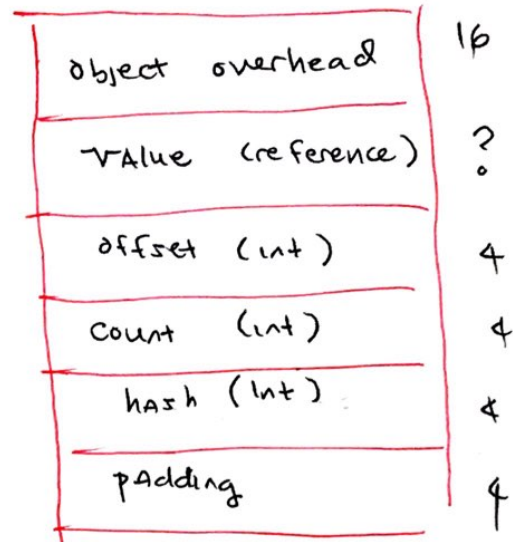 object overhead 16
value (reference) ?
offset (int) 4
count (int) 4
hash (int) 4
padding 4